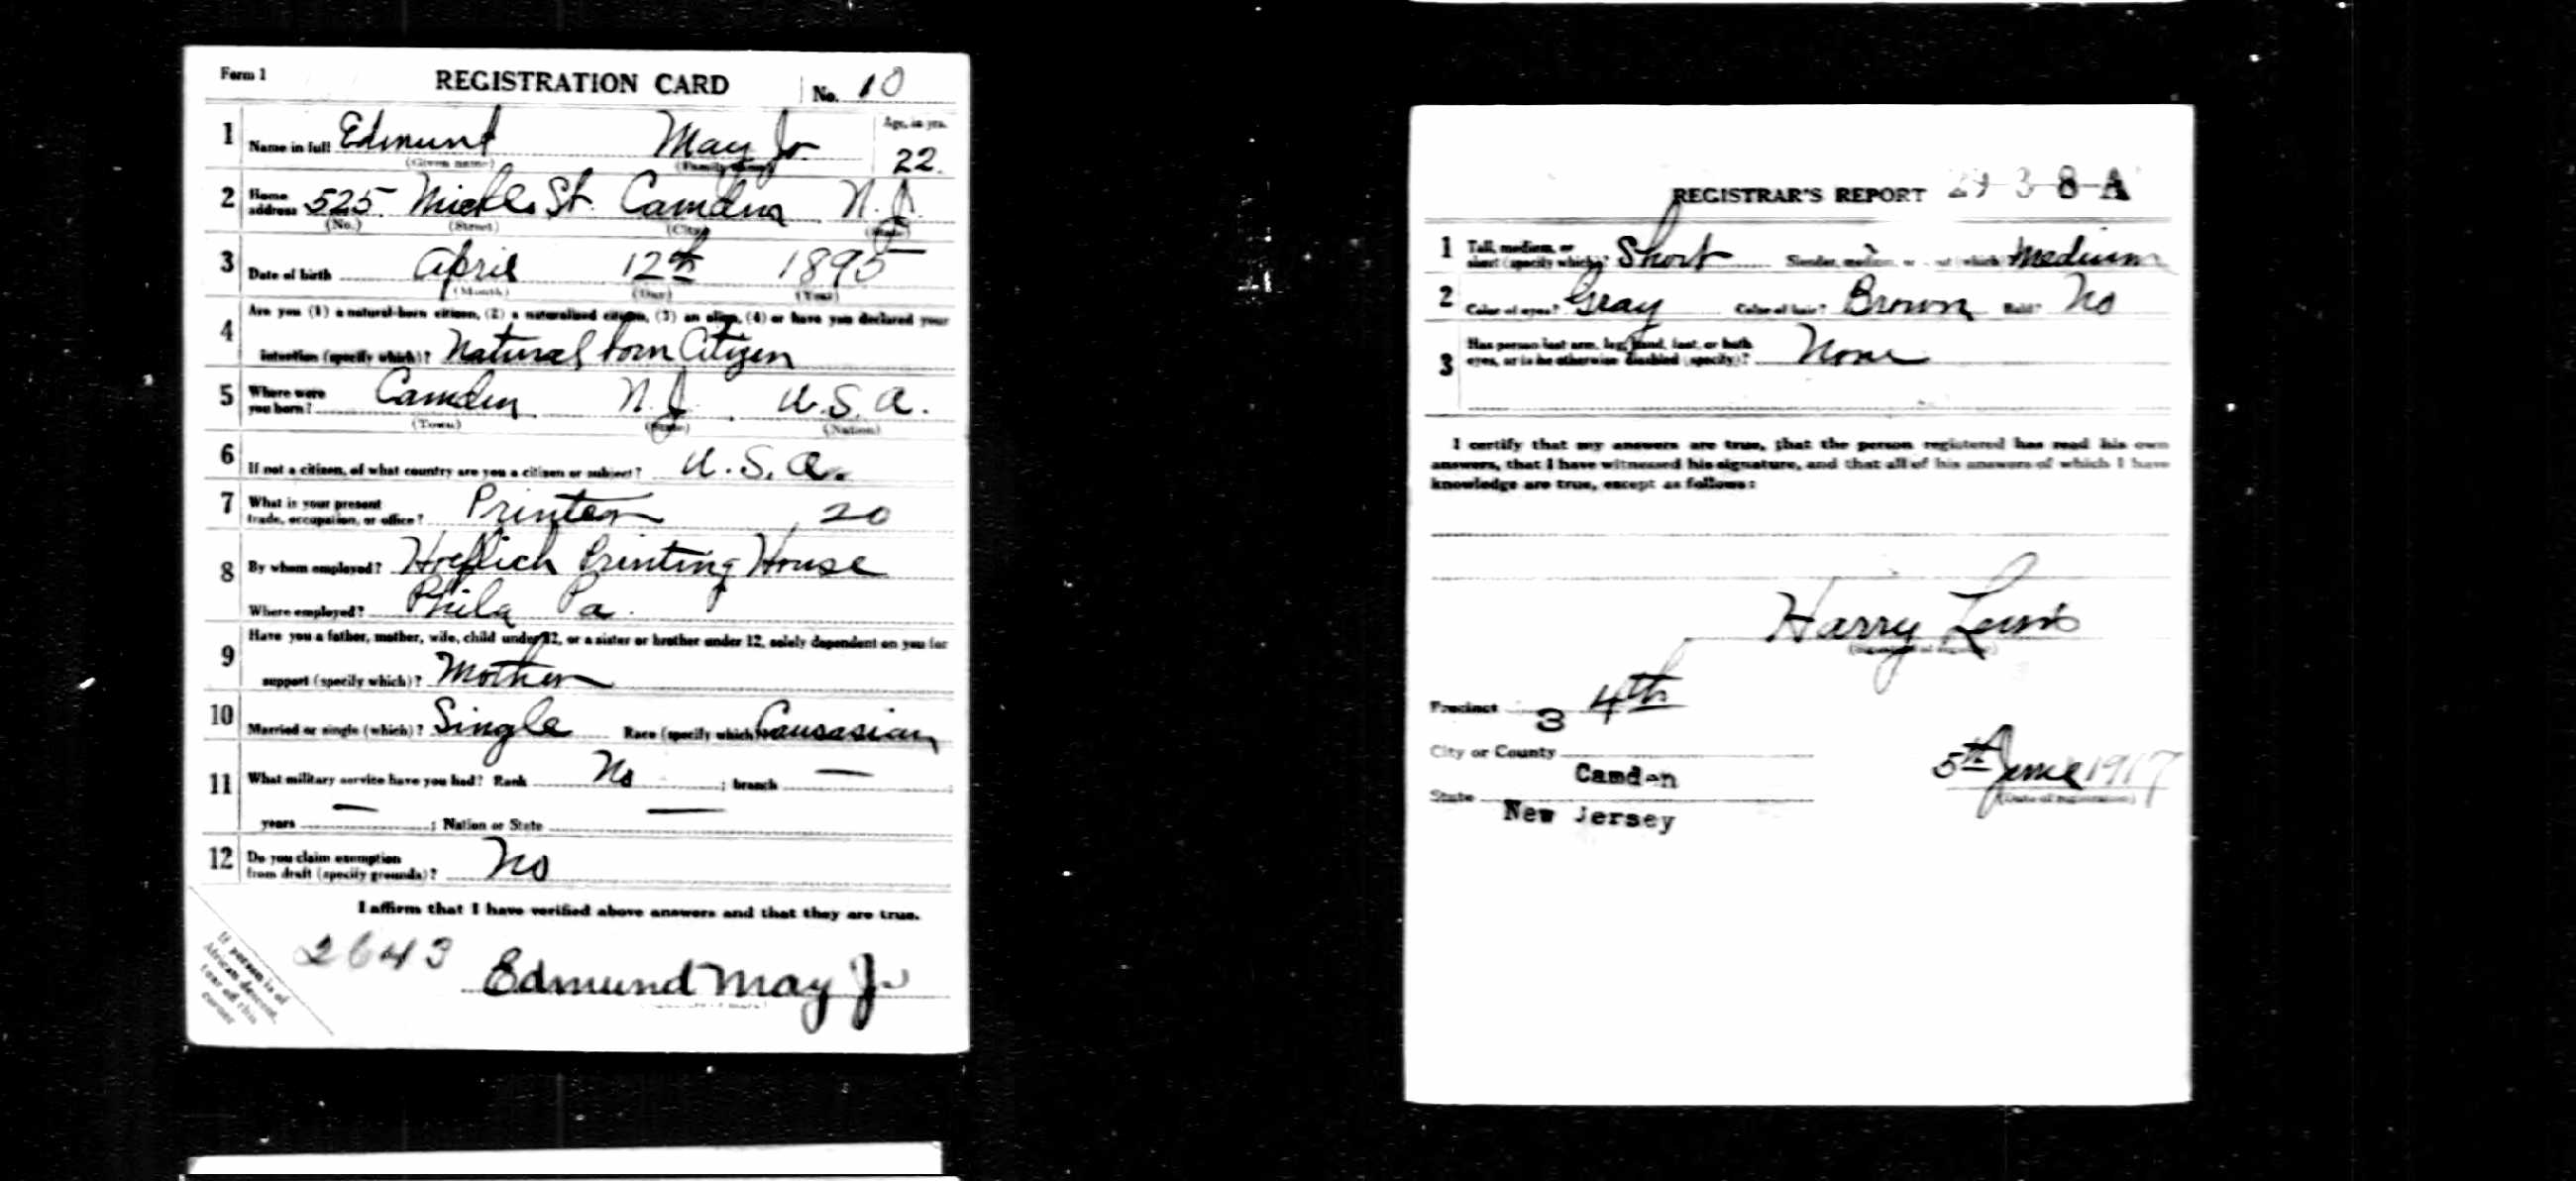 Form 1
REGISTRATION CARD
No. 10
1 Name in full Edmund May Jr
(Given name) (Family name)
Age, in yrs.
22.
2 Home address 525 Mickle St. Camden N. J.
(No.) (Street) (City) (State)
3 Date of birth April 12th 1895
(Month) (Day) (Year)
4 Are you (1) a natural-born citizen, (2) a naturalized citizen, (3) an alien, (4) or have you declared your
intention (specify which)? Natural born Citizen
5 Where were you born? Camden N. J. U. S. A.
(Town) (State) (Nation)
6 If not a citizen, of what country are you a citizen or subject? U. S. A.
7 What is your present trade, occupation, or office? Printer 20
8 By whom employed? Hoeflich Printing House
Where employed? Phila Pa.
9 Have you a father, mother, wife, child under 12, or a sister or brother under 12, solely dependent on you for
support (specify which)? Mother
10 Married or single (which)? Single Race (specify which)? Causasian
11 What military service have you had? Rank No ; branch —
years — ; Nation or State —
12 Do you claim exemption from draft (specify grounds)? No
I affirm that I have verified above answers and that they are true.
2643 Edmund May Jr
If person is of
African descent,
tear off this
corner
REGISTRAR'S REPORT 29-3-8-A
1 Tall, medium, or short (specify which)? Short Slender, medium, or stout (which)? Medium
2 Color of eyes? Gray Color of hair? Brown Bald? No
3 Has person lost arm, leg, hand, foot, or both
eyes, or is he otherwise disabled (specify)? None
I certify that my answers are true, that the person registered has read his own
answers, that I have witnessed his signature, and that all of his answers of which I have
knowledge are true, except as follows:
Harry Lewis
(Signature of registrar)
Precinct 3 4th
City or County Camden
State New Jersey
5th June 1917
(Date of registration)